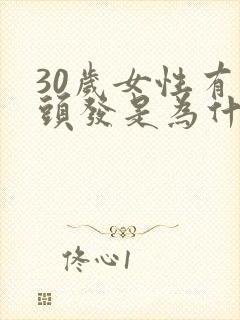 30歲女性有
頭發是為什
佟心1